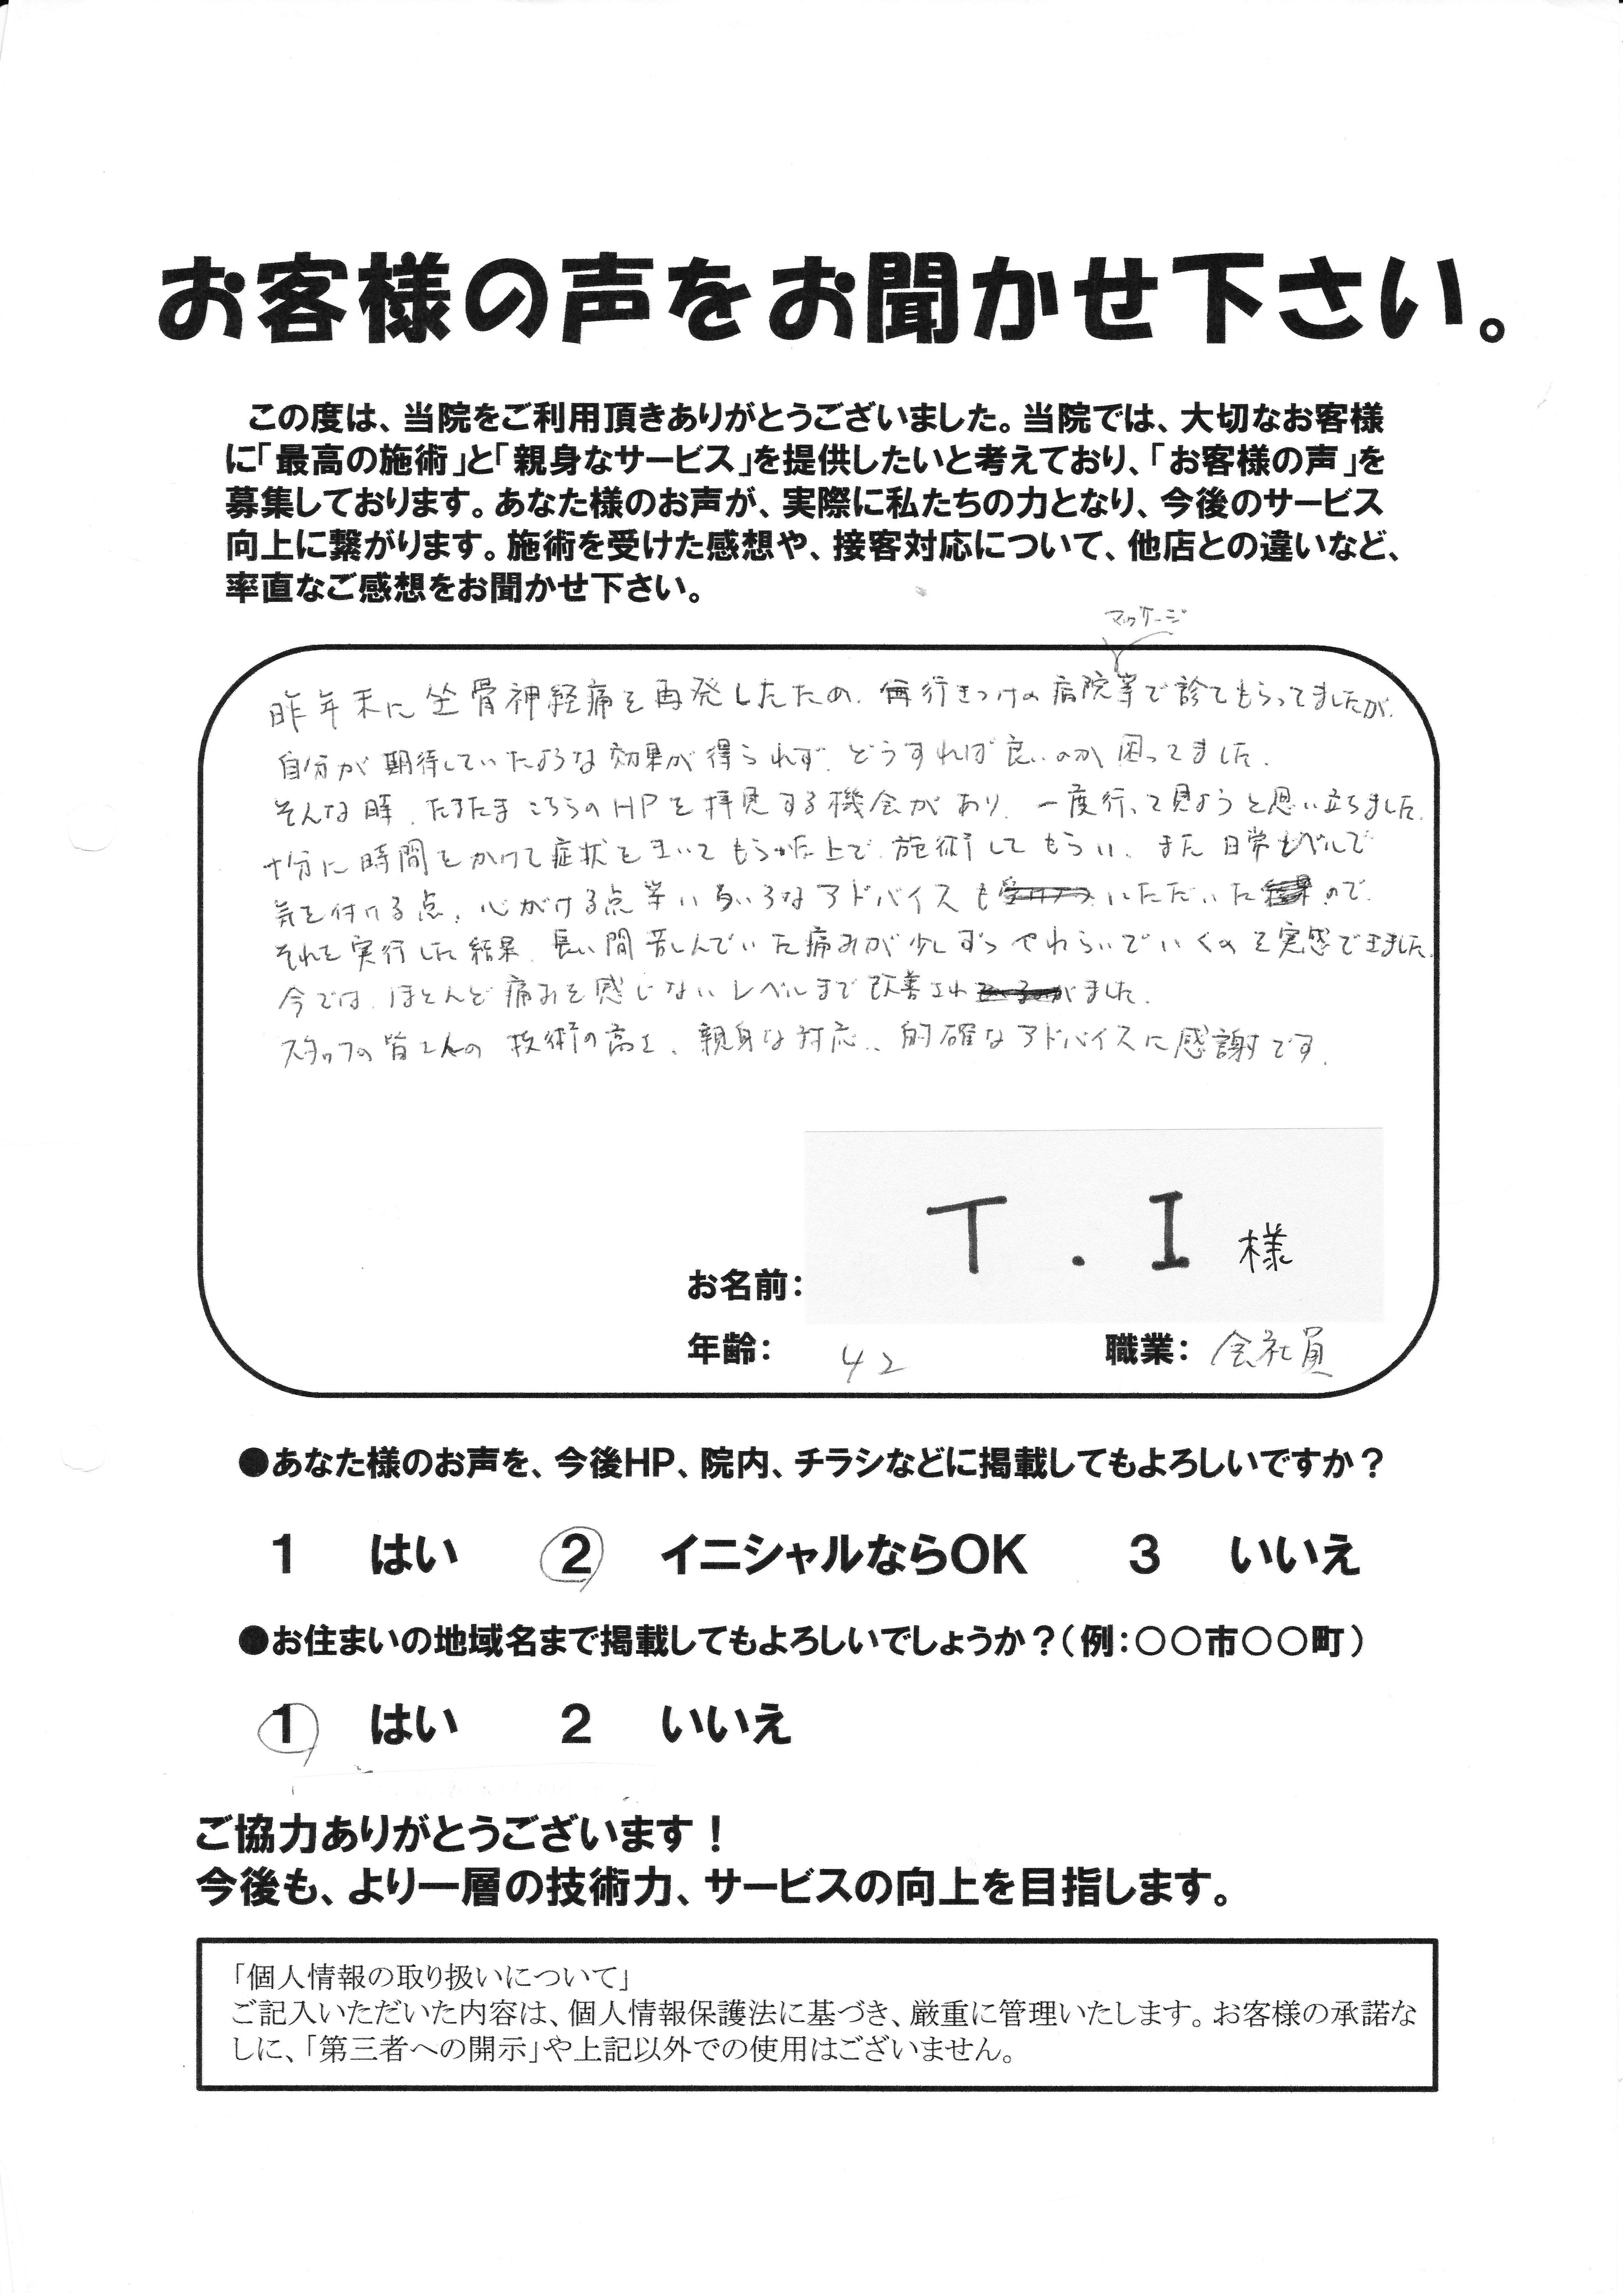 お客様の声をお聞かせ下さい。
この度は、当院をご利用頂きありがとうございました。当院では、大切なお客様
に「最高の施術」と「親身なサービス」を提供したいと考えており、「お客様の声」を
募集しております。あなた様のお声が、実際に私たちの力となり、今後のサービス
向上に繋がります。施術を受けた感想や、接客対応について、他店との違いなど、
率直なご感想をお聞かせ下さい。
マッサージ
昨年末に坐骨神経痛を再発したため、行きつけの病院等で診てもらってましたが、
自分が期待していたような効果が得られず、どうすれば良いのか困ってました。
そんな時、たまたまこちらのHPを拝見する機会があり、一度行って見ようと思い立ちました。
十分に時間をかけて症状をきいてもらった上で、施術してもらい、また日常レベルで
気を付ける点、心がける点等いろいろなアドバイスもいただいたので、
それを実行した結果、長い間苦しんでいた痛みが少しずつやわらいでいくのを実感できました。
今では、ほとんど痛みを感じないレベルまで改善されました。
スタッフの皆さんの技術の高さ、親身な対応、的確なアドバイスに感謝です。
お名前： T.I 様
年齢： 42 職業： 会社員
●あなた様のお声を、今後HP、院内、チラシなどに掲載してもよろしいですか？
1 はい 2 イニシャルならOK 3 いいえ
●お住まいの地域名まで掲載してもよろしいでしょうか？（例：○○市○○町）
1 はい 2 いいえ
ご協力ありがとうございます！
今後も、より一層の技術力、サービスの向上を目指します。
「個人情報の取り扱いについて」
ご記入いただいた内容は、個人情報保護法に基づき、厳重に管理いたします。お客様の承諾な
しに、「第三者への開示」や上記以外での使用はございません。